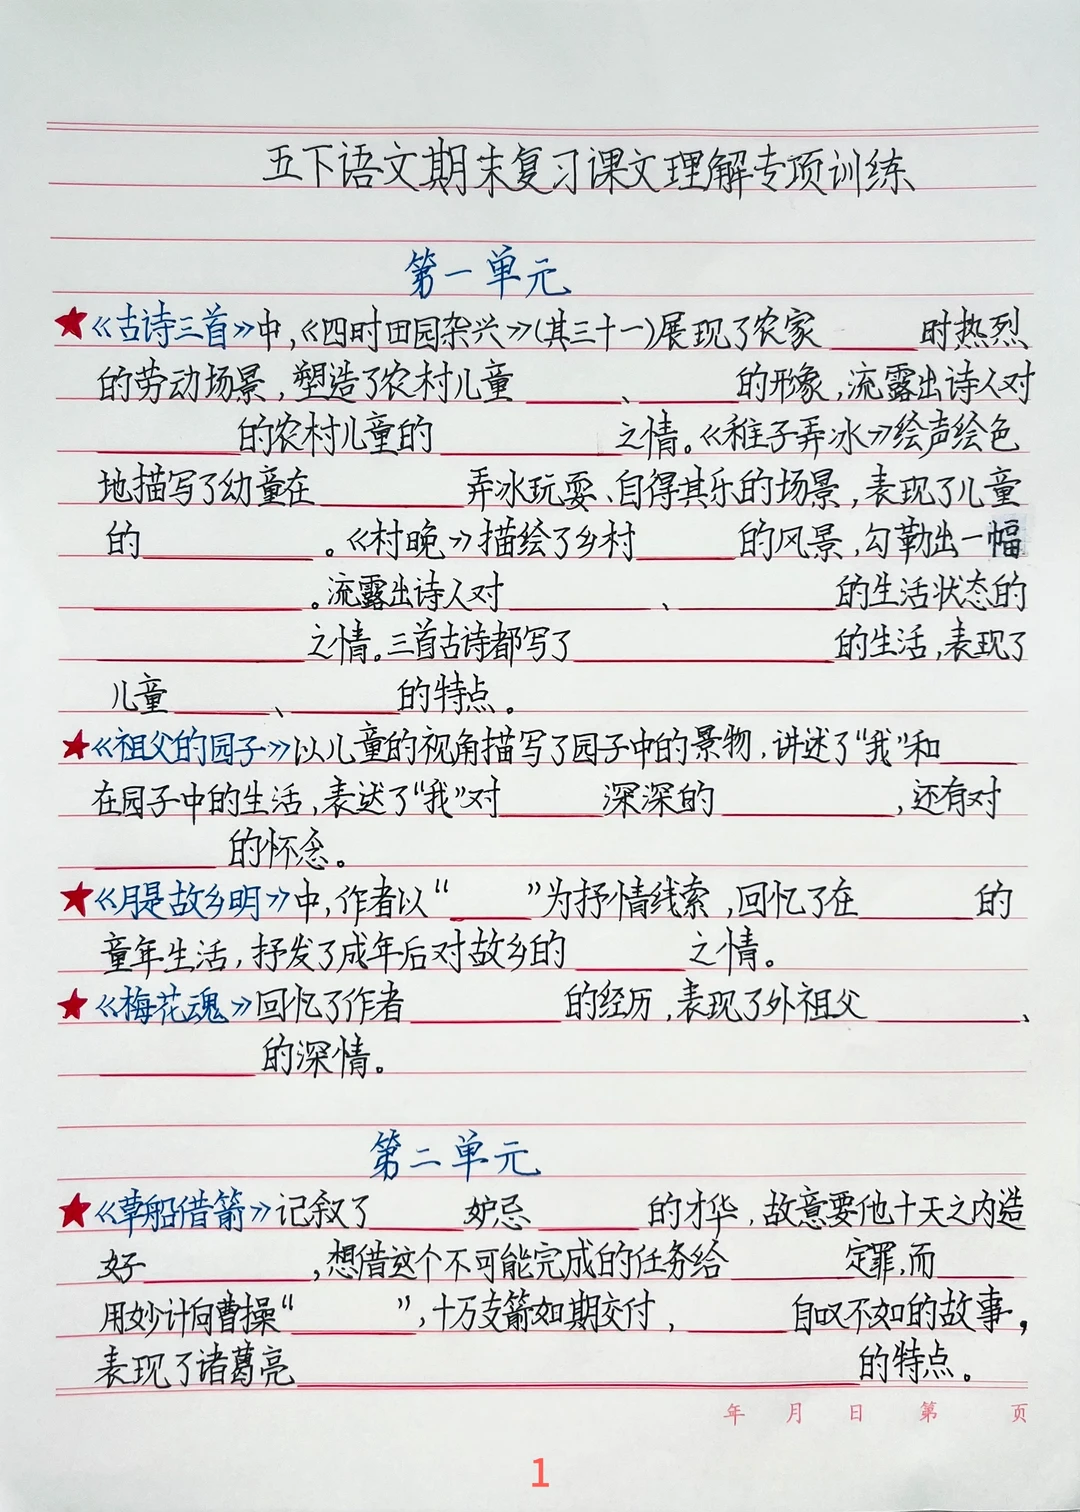 五下语文期末复习课文理解专项训练
第一单元
★《古诗三首》中,《四时田园杂兴》(其三十一)展现了农家____时热烈
的劳动场景,塑造了农村儿童____、____的形象,流露出诗人对
____的农村儿童的____之情。《稚子弄冰》绘声绘色
地描写了幼童在____弄冰玩耍、自得其乐的场景,表现了儿童
的____。《村晚》描绘了乡村____的风景,勾勒出一幅
____。流露出诗人对____、____的生活状态的
____之情。三首古诗都写了____的生活,表现了
儿童____、____的特点。
★《祖父的园子》以儿童的视角描写了园子中的景物,讲述了“我”和____
在园子中的生活,表达了“我”对____深深的____,还有对
____的怀念。
★《月是故乡明》中,作者以“____”为抒情线索,回忆了在____的
童年生活,抒发了成年后对故乡的____之情。
★《梅花魂》回忆了作者____的经历,表现了外祖父____、
____的深情。
第二单元
★《草船借箭》记叙了____妒忌____的才华,故意要他十天之内造
好____,想借这个不可能完成的任务给____定罪,而____
用妙计向曹操“____”,十万支箭如期交付,____自叹不如的故事,
表现了诸葛亮____的特点。
年 月 日 第 页
1